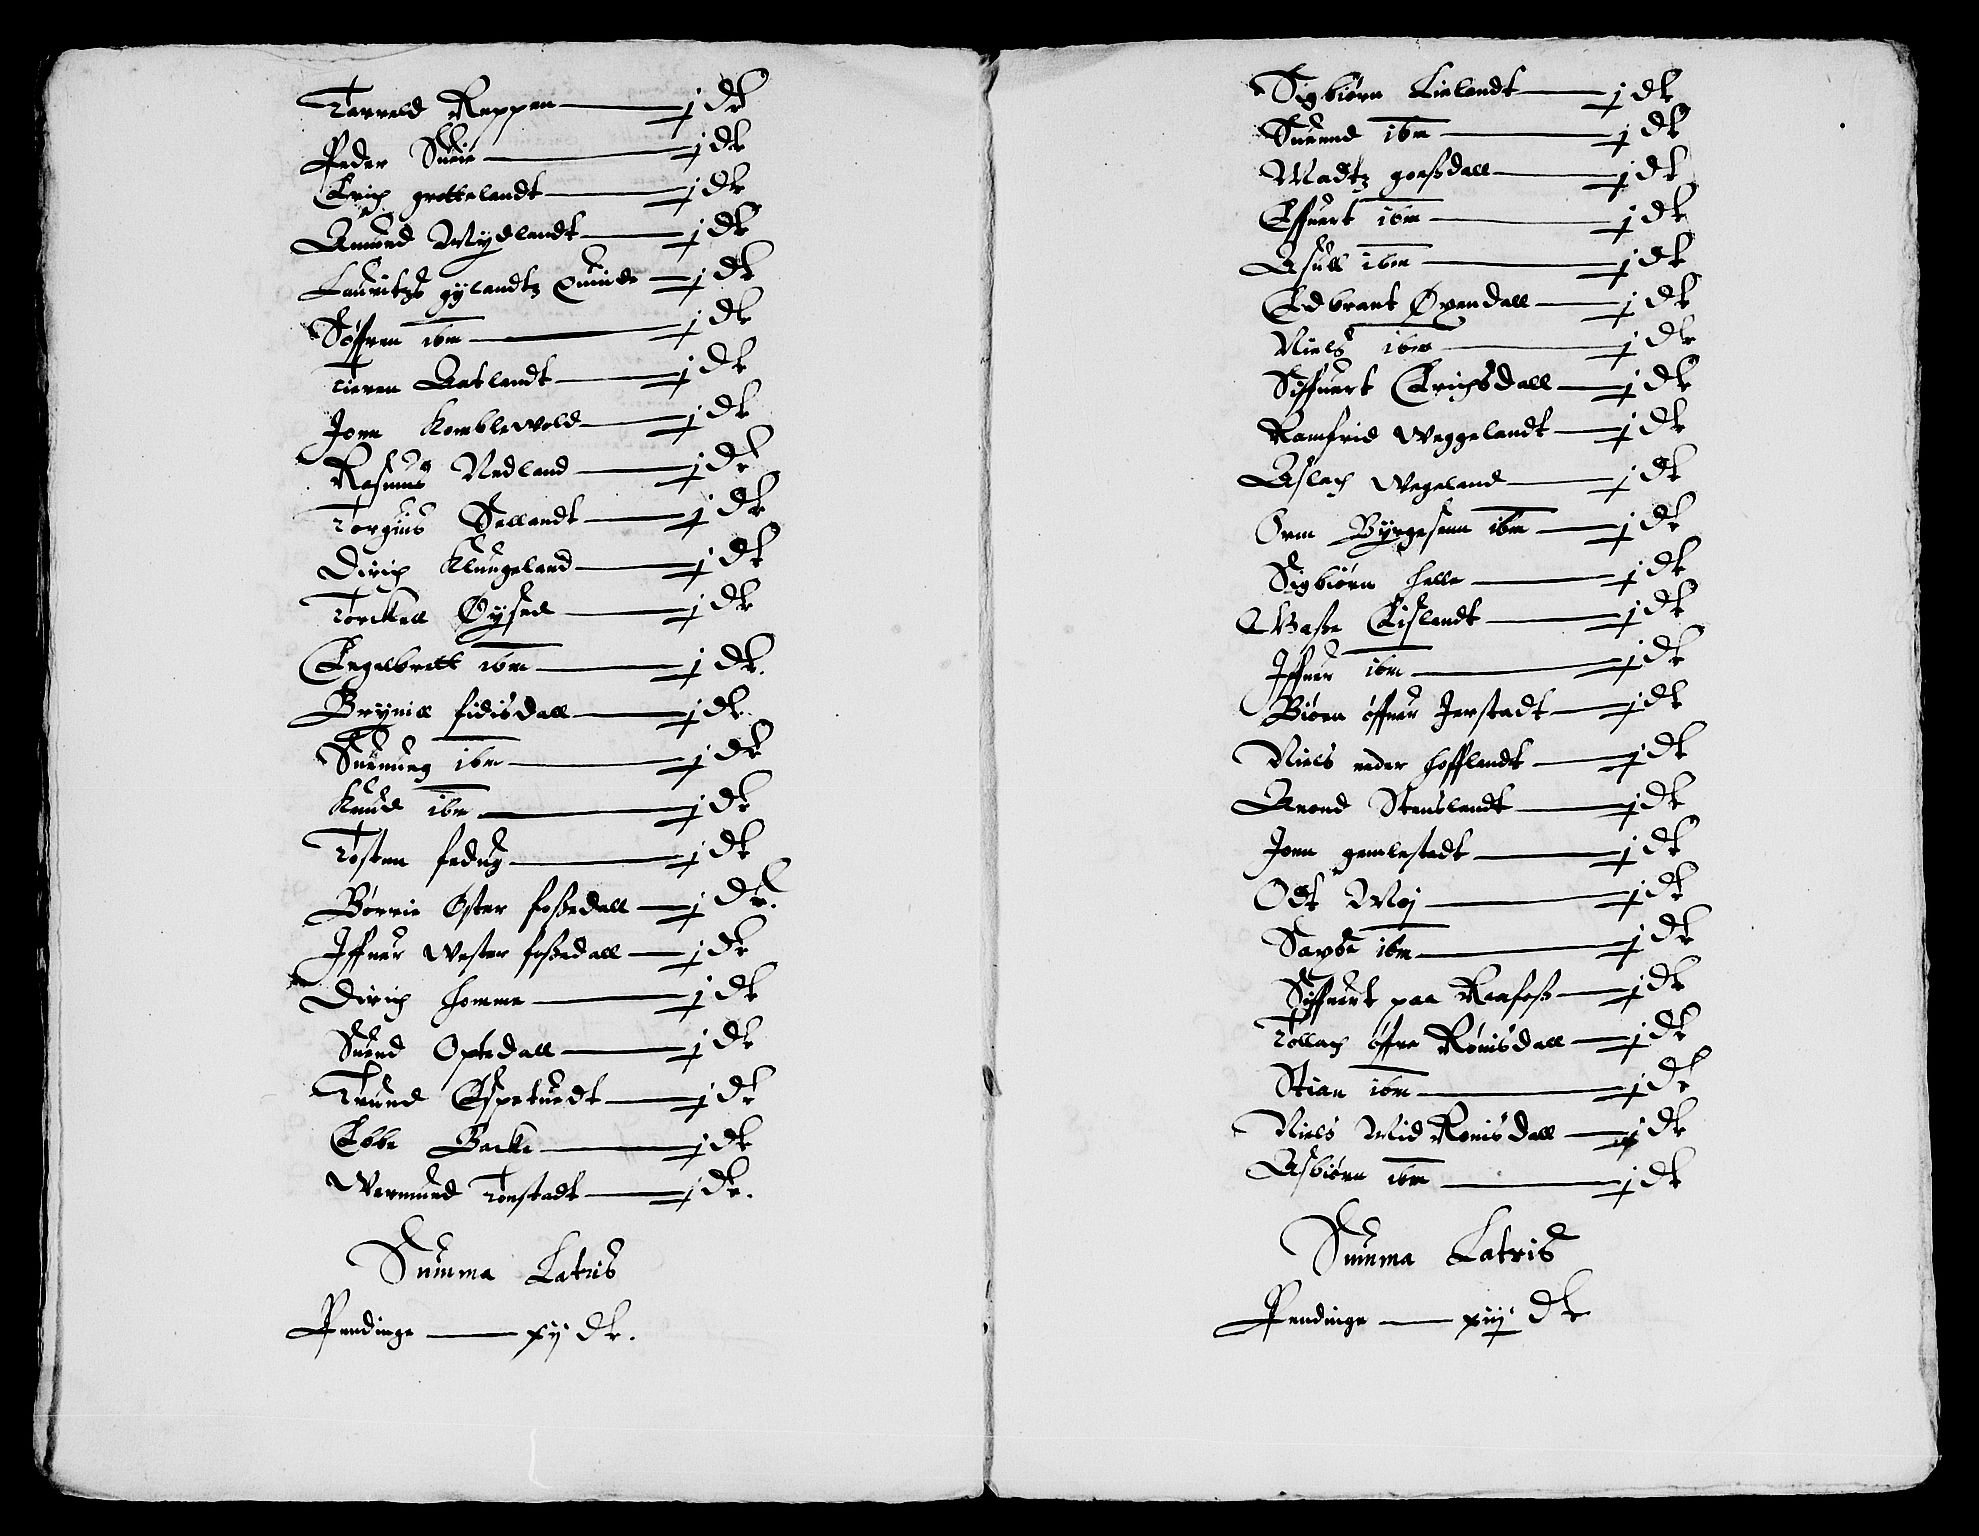 Tarreld Reppen — j dr
Peder Sueie — j dr
Erich grottelandt — j dr
Amund Mydlandt — j dr
Lauritzs gylandtz Quinde — j dr
Søffren ibm — j dr
Tieren Aatlandt — j dr
Jonn — j dr
Rasmus Nedland — j dr
Torgius Sellandt — j dr
Dirich Klungeland — j dr
Torckell Øysed — j dr
Engelbrett ibm — j dr.
Brynill fidisdall — j dr
Suenung ibm — j dr
Knud ibm — j dr
Tosten fedug — j dr
Børrie Øster fossedall — j dr.
Iffuer Wester fossedall — j dr
Dirich homme — j dr
Suend Optedall — j dr
Trund Espetuedt — j dr
Ebbe Backe — j dr
Wermund Tonstadt — j dr.
Summa Latris
Pendinge — xij dr.
Sigbiørn Lielandt — j dr
Suennd ibm — j dr
Madtz goessdall — j dr
Effuert ibm — j dr
Asull ibm — j dr
Edbrant Øxendall — j dr
Niels ibm — j dr
Siffuert Erichsdall — j dr
Ramfrid Weggelandt — j dr
Aslach Wegeland — j dr
Orm Byrgesenn ibm — j dr
Sigbiørn helle — j dr
Eislandt — j dr
Iffuer ibm — j dr
Biørn øffuer Jerstadt — j dr
Niels neder hofflandt — j dr
Anond Stenslandt — j dr
Jonn gemlestadt — j dr
Odt Moj — j dr
ibm — j dr
Siffuert paa Raafoss — j dr
Tollach øffre Rønisdall — j dr
Stian ibm — j dr
Niels Mid Rønisdall — j dr
Asbiørn ibm — j dr
Summa Latris
Pendinge — xijj dr